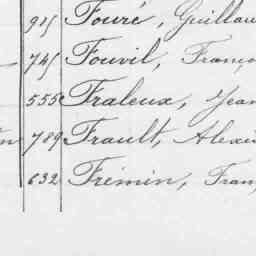 915 Fouré, Guillau
745 Fouvil, Franço
555 Fraleux, Jean
789 Frault, Alexi
632 Frémin, Fran